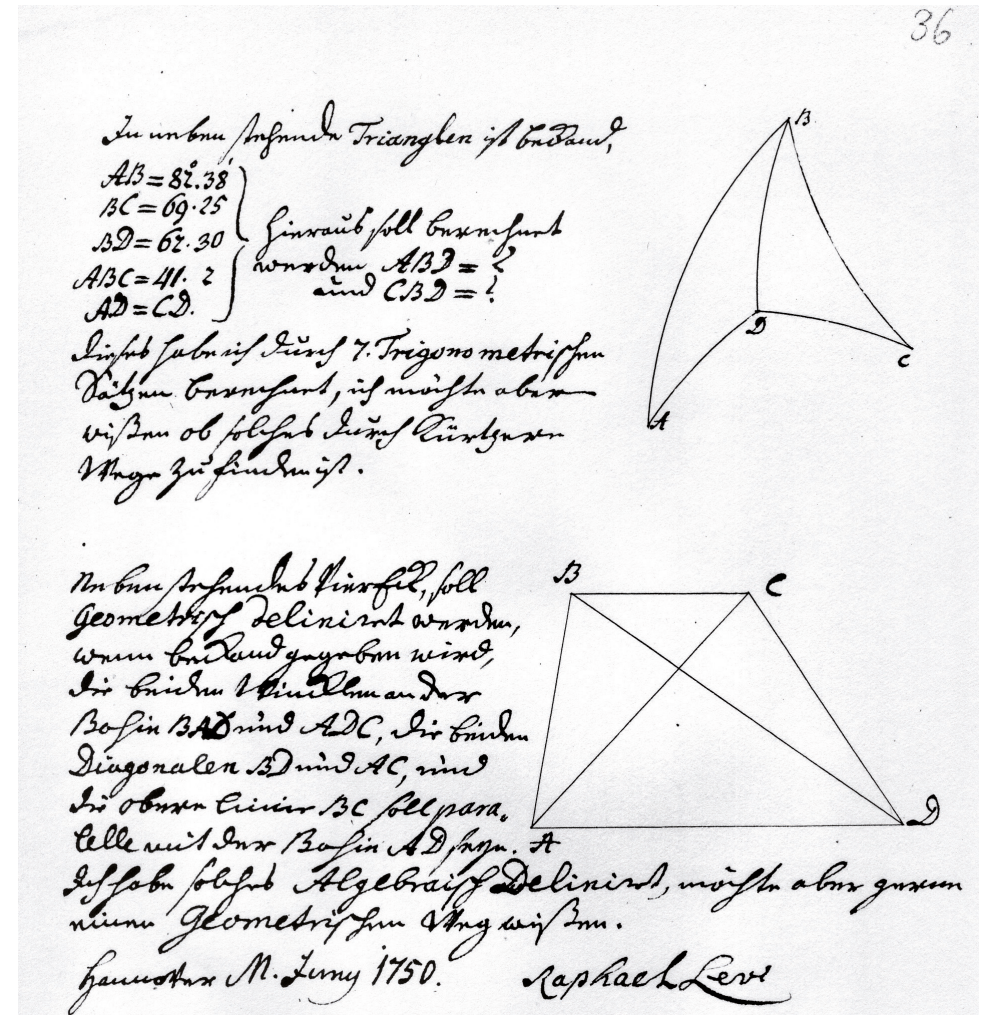 36
In neben stehende Trianglen ist bekand,
AB = 82°.38'
BC = 69.25
BD = 62.30
ABC = 41. 2
AD = CD.
Hieraus soll berechnet
werden ABD = ?
und CBD = ?
B
D
C
A
dieses habe ich durch 7. Trigonometrischen
Sätzen berechnet, ich möchte aber
wißen ob solches durch Kürtzern
Wege zu finden ist.
Neben stehendes VierEck, soll
Geometrisch deliniret werden,
wenn bekand gegeben wird,
die beiden Wincklen an der
Basin BAD und ADC, die beiden
Diagonalen BD und AC, und
die obere Linie BC soll para„
lelle mit der Basin AD seyn.
B
C
A
D
Ich habe solches Algebraisch Deliniret, möchte aber gerne
einen Geometrischen Weg wißen.
Hannover M. Juny 1750. Raphael Levi